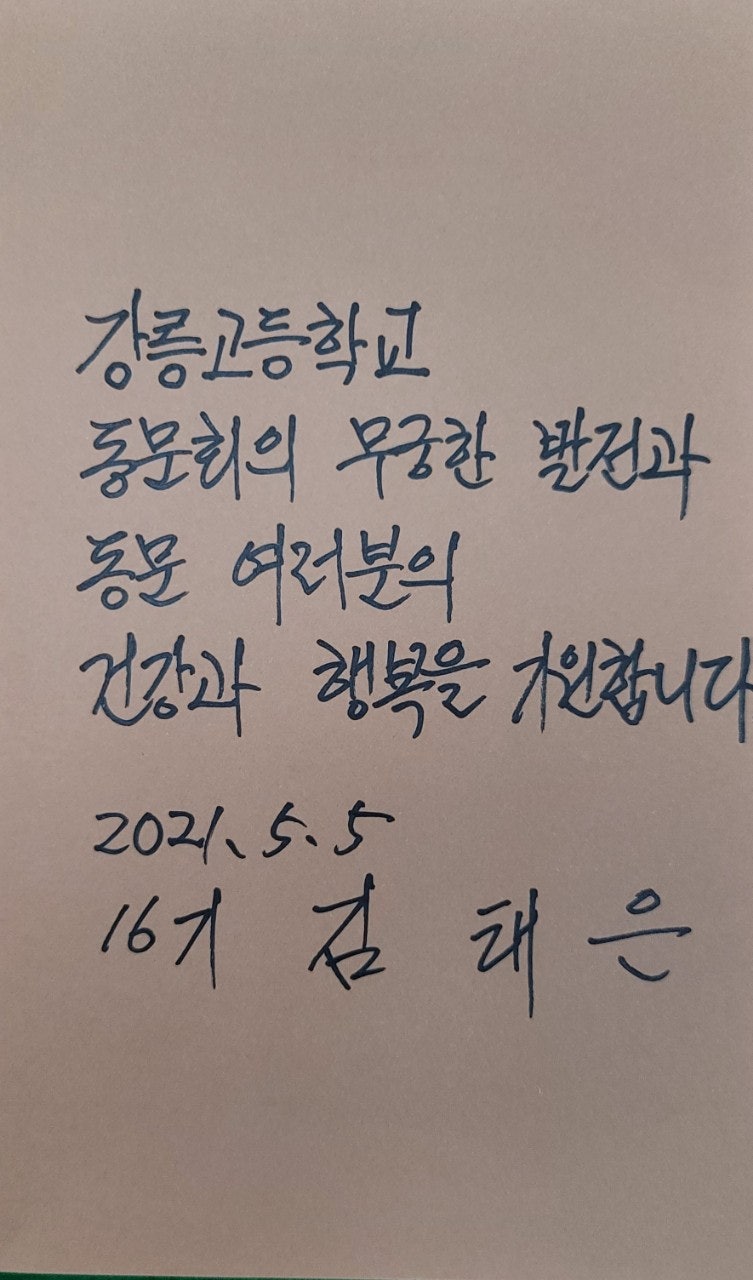 강릉고등학교
동문회의 무궁한 발전과
동문 여러분의
건강과 행복을 기원합니다
2021. 5. 5
16기 김 태 은